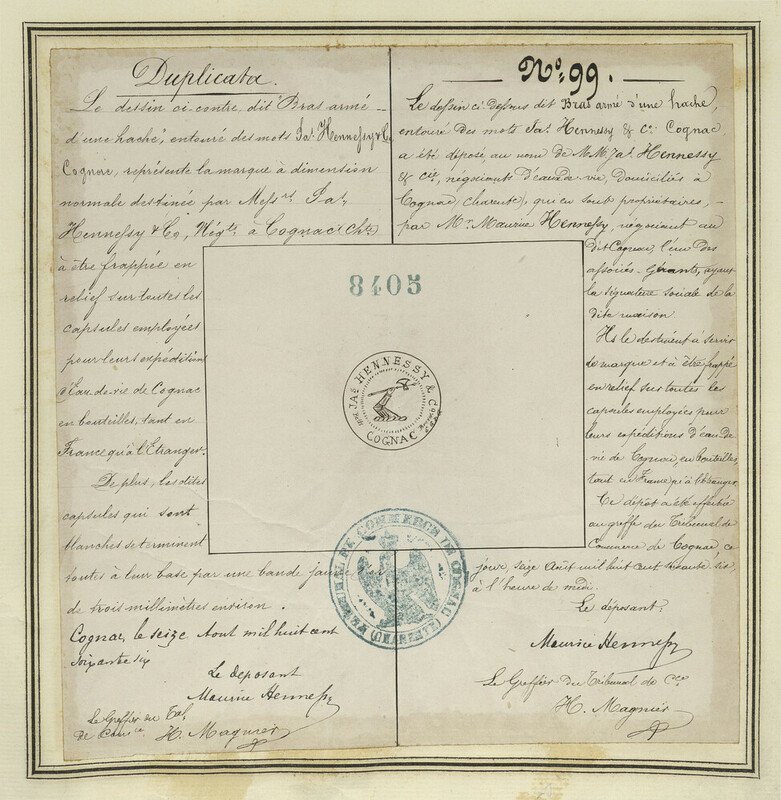 Duplicata.
Le dessin ci-contre, dit "Bras armé
d'une hache", entouré des mots Jas Hennessy & Co
Cognac, représente la marque à dimension
normale destinée par Messrs Jas
Hennessy & Co, Négts à Cognac (Chte
à être frappée en
relief sur toutes les
capsules employées
pour leurs expéditions
d'Eau-de-vie de Cognac
en bouteilles, tant en
France qu'à l'Etranger.
De plus, les dites
capsules qui sont
blanches se terminent
toutes à leur base par une bande jaune
de trois millimètres environ.
Cognac, le seize Aout mil huit cent
soixante six
Le déposant
Maurice Hennessy
Le Greffier du Tal
de Comce
H. Magnier
8405
JAS HENNESSY & Co
COGNAC
TRIBUNAL DE COMMERCE DE COGNAC
(CHARENTE)
No 99.
Le dessin ci-dessus dit Bras armé d'une hache,
entouré des mots Jas Hennessy & Co Cognac
a été déposé au nom de M.M. Jas Hennessy
& Cie, négociants d'eau-de-vie, domiciliés à
Cognac, charente, qui en sont propriétaires, -
par Mr Maurice Hennessy, négociant au
dit Cognac, l'un des
associés-Gérants, ayant
la signature sociale de la
dite maison.
Ils le destinent à servir
de marque et à être frappé
en relief sur toutes les
capsules employées pour
leurs expéditions d'eau-de-
vie de Cognac, en bouteilles,
tant en France qu'à l'étranger
Ce dépôt a été effectué
au greffe du Tribunal de
Commerce de Cognac, ce
jour, seize Août mil huit cent soixante six,
à l'heure de midi.
Le déposant,
Maurice Hennessy
Le Greffier du Tribunal de Cce
H. Magnier